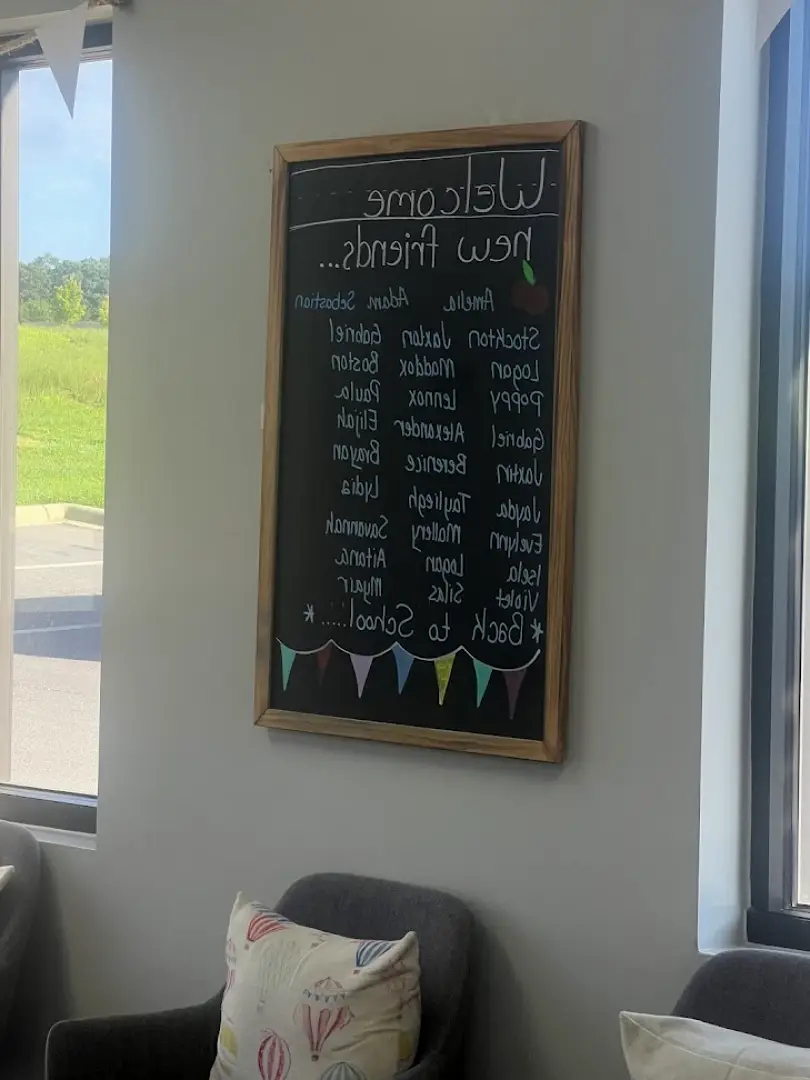 Welcome
new friends...
Amelia Adam Sebastian
Stockton Jaxton Gabriel
Logan Maddox Boston
Poppy Lennox Paula
Gabriel Alexander Elijah
Jaxtin Berenice Brayan
Jayda Tayliegh Lydia
Evelynn Mallery Savannah
Isela Logan Aitana
Violet Silas Myair
*Back to School.....*